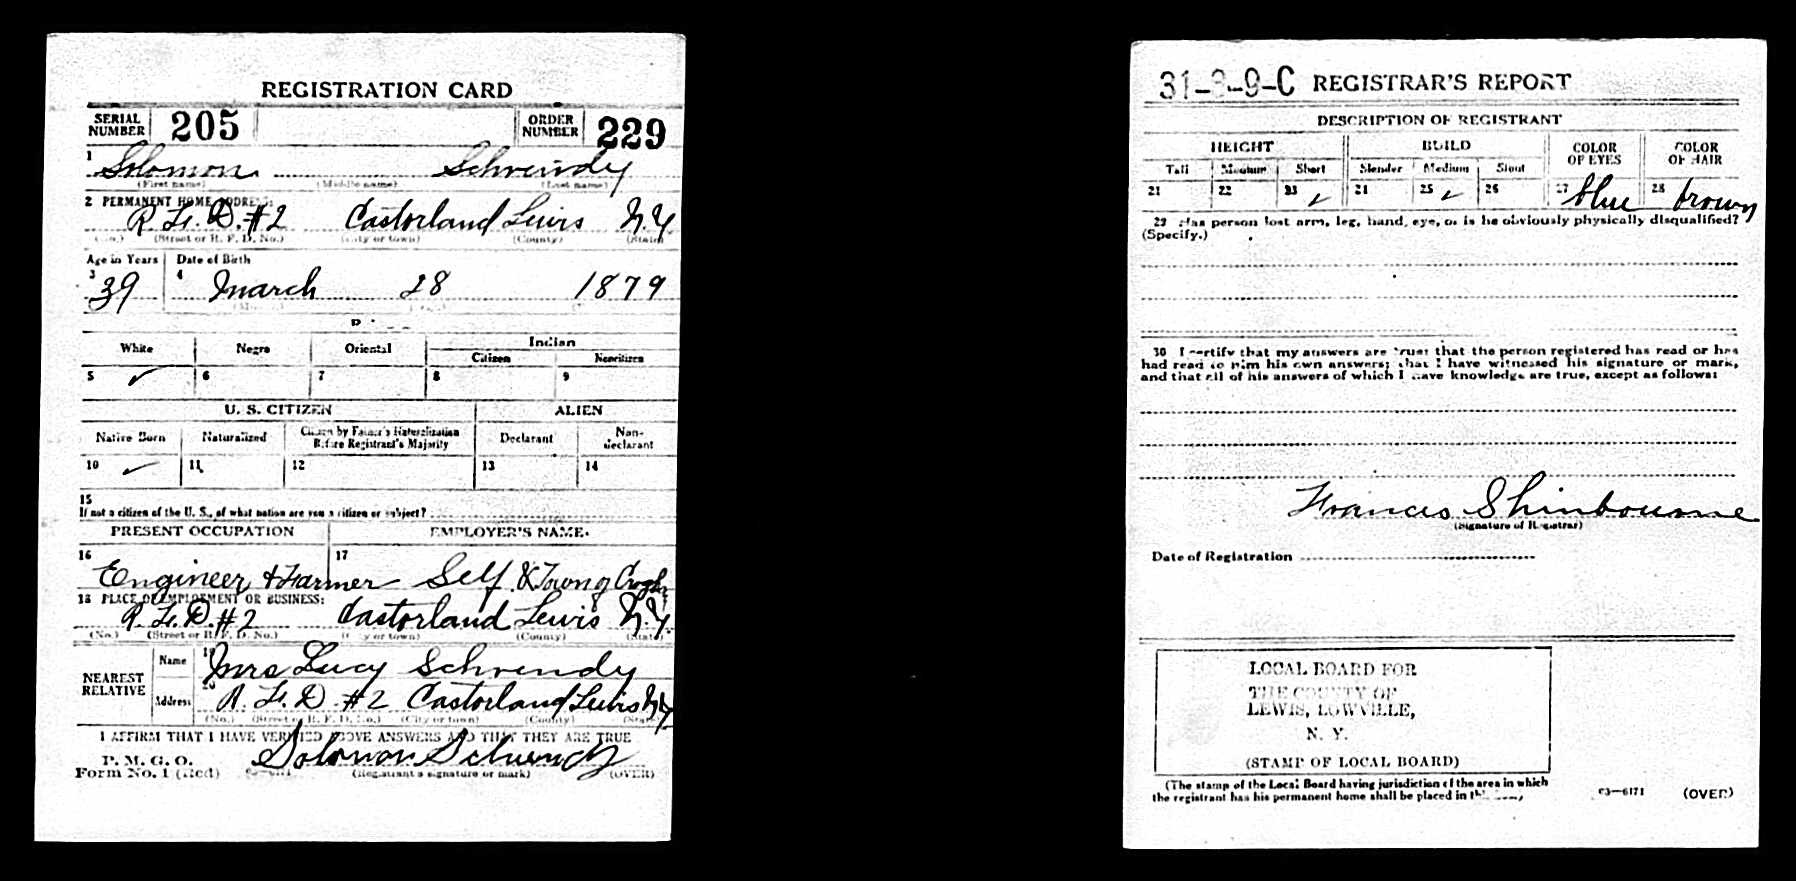 REGISTRATION CARD
SERIAL NUMBER 205 ORDER NUMBER 229
1 Solomon Schwendy
(First name) (Middle name) (Last name)
2 PERMANENT HOME ADDRESS:
R. F. D. #2 Castorland Lewis N.Y.
(No.) (Street or R. F. D. No.) (City or town) (County) (State)
Age in Years Date of Birth
3 39 4 March 28 1879
White Negro Oriental Indian
Citizen Noncitizen
5 ✓ 6 7 8 9
U. S. CITIZEN ALIEN
Native Born Naturalized Citizen by Father's Naturalization Before Registrant's Majority Declarant Non-declarant
10 ✓ 11 12 13 14
15
If not a citizen of the U. S., of what nation are you a citizen or subject?
PRESENT OCCUPATION EMPLOYER'S NAME
16 Engineer & Farmer 17 Self & Town of Crogh
18 PLACE OF EMPLOYMENT OR BUSINESS:
R. F. D. #2 Castorland Lewis N.Y.
(No.) (Street or R. F. D. No.) (City or town) (County) (State)
NEAREST RELATIVE Name 19 Mrs Lucy Schwendy
Address 20 R. F. D. #2 Castorland Lewis N.Y.
(No.) (Street or R. F. D. No.) (City or town) (County) (State)
I AFFIRM THAT I HAVE VERIFIED ABOVE ANSWERS AND THAT THEY ARE TRUE
P. M. G. O.
Form No. 1 (Red) Solomon Schwendy
(Registrant's signature or mark) (OVER)
31-3-9-C REGISTRAR'S REPORT
DESCRIPTION OF REGISTRANT
HEIGHT BUILD COLOR OF EYES COLOR OF HAIR
Tall Medium Short Slender Medium Stout
21 22 23 ✓ 24 25 ✓ 26 27 blue 28 brown
29 Has person lost arm, leg, hand, eye, or is he obviously physically disqualified?
(Specify.)
30 I certify that my answers are true; that the person registered has read or has
had read to him his own answers; that I have witnessed his signature or mark,
and that all of his answers of which I have knowledge are true, except as follows:
Francis Shinbourne
(Signature of Registrar)
Date of Registration
LOCAL BOARD FOR
THE COUNTY OF
LEWIS, LOWVILLE,
N. Y.
(STAMP OF LOCAL BOARD)
(The stamp of the Local Board having jurisdiction of the area in which
the registrant has his permanent home shall be placed in this
03—6171 (OVER)